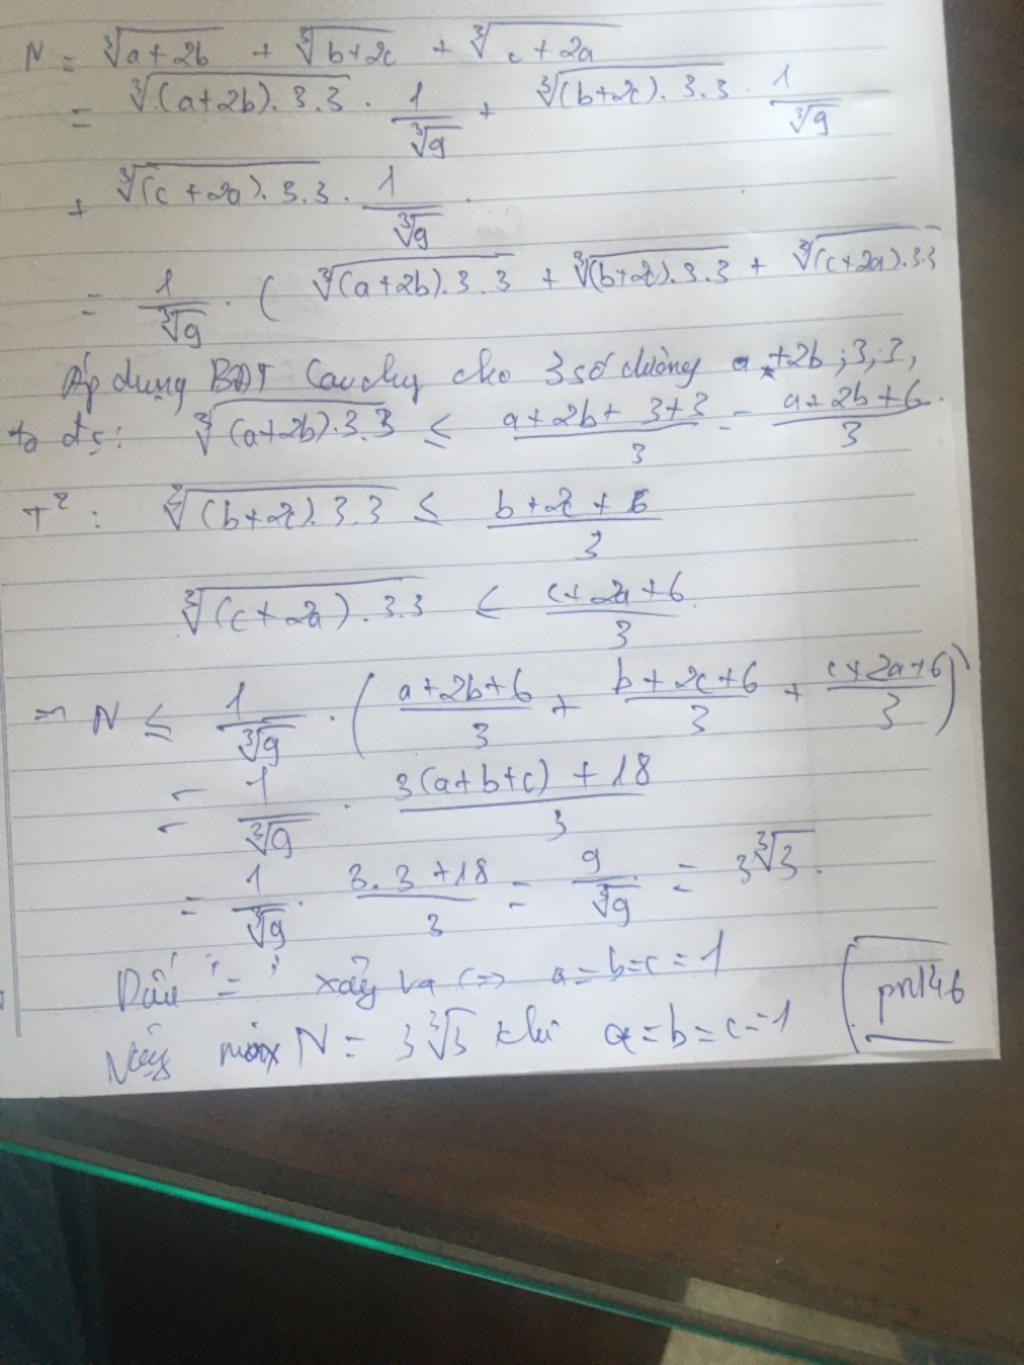 N = ∛(a+2b) + ∛(b+2c) + ∛(c+2a)
= ∛((a+2b).3.3) . 1/∛9 + ∛((b+2c).3.3) . 1/∛9
+ ∛((c+2a).3.3) . 1/∛9 .
= 1/∛9 . ( ∛((a+2b).3.3) + ∛((b+2c).3.3) + ∛((c+2a).3.3)
Áp dụng BĐT Cauchy cho 3 số dương a+2b ; 3 ; 3,
ta đc: ∛((a+2b).3.3) ≤ (a+2b+3+3)/3 = (a+2b+6)/3 .
T² : ∛((b+2c).3.3) ≤ (b+2c+6)/3
∛((c+2a).3.3) ≤ (c+2a+6)/3
⇒ N ≤ 1/∛9 . ( (a+2b+6)/3 + (b+2c+6)/3 + (c+2a+6)/3 )
= 1/∛9 . (3(a+b+c)+18)/3
= 1/∛9 . (3.3+18)/3 = 9/∛9 = 3∛3 .
Dấu "=" xảy ra <=> a=b=c=1
Vậy max N = 3∛3 khi a=b=c=1
pn146